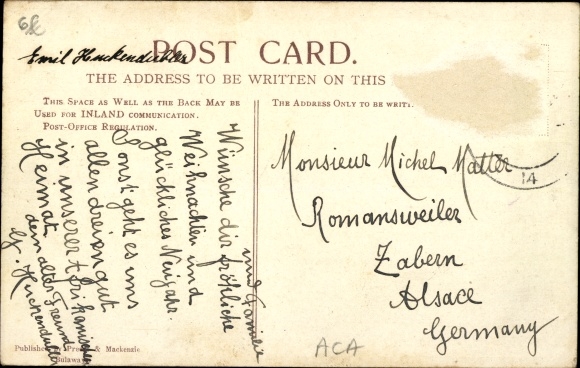 Emil Huckendubler
POST CARD.
THE ADDRESS TO BE WRITTEN ON THIS
THIS SPACE AS WELL AS THE BACK MAY BE
USED FOR INLAND COMMUNICATION.
POST-OFFICE REGULATION.
THE ADDRESS ONLY TO BE WRITT
Wünsche dir fröhliche
und Familie
Weihnachten und
glückliches Neujahr.
Sonst geht es uns
allen dreien gut
in unserer Afrikanischen
Heimat
dein alter Freund
Huckendubler
Monsieur Michel Matter
Romansweiler
Zabern
Alsace
Germany
14
ACA
& Mackenzie
Bulawa